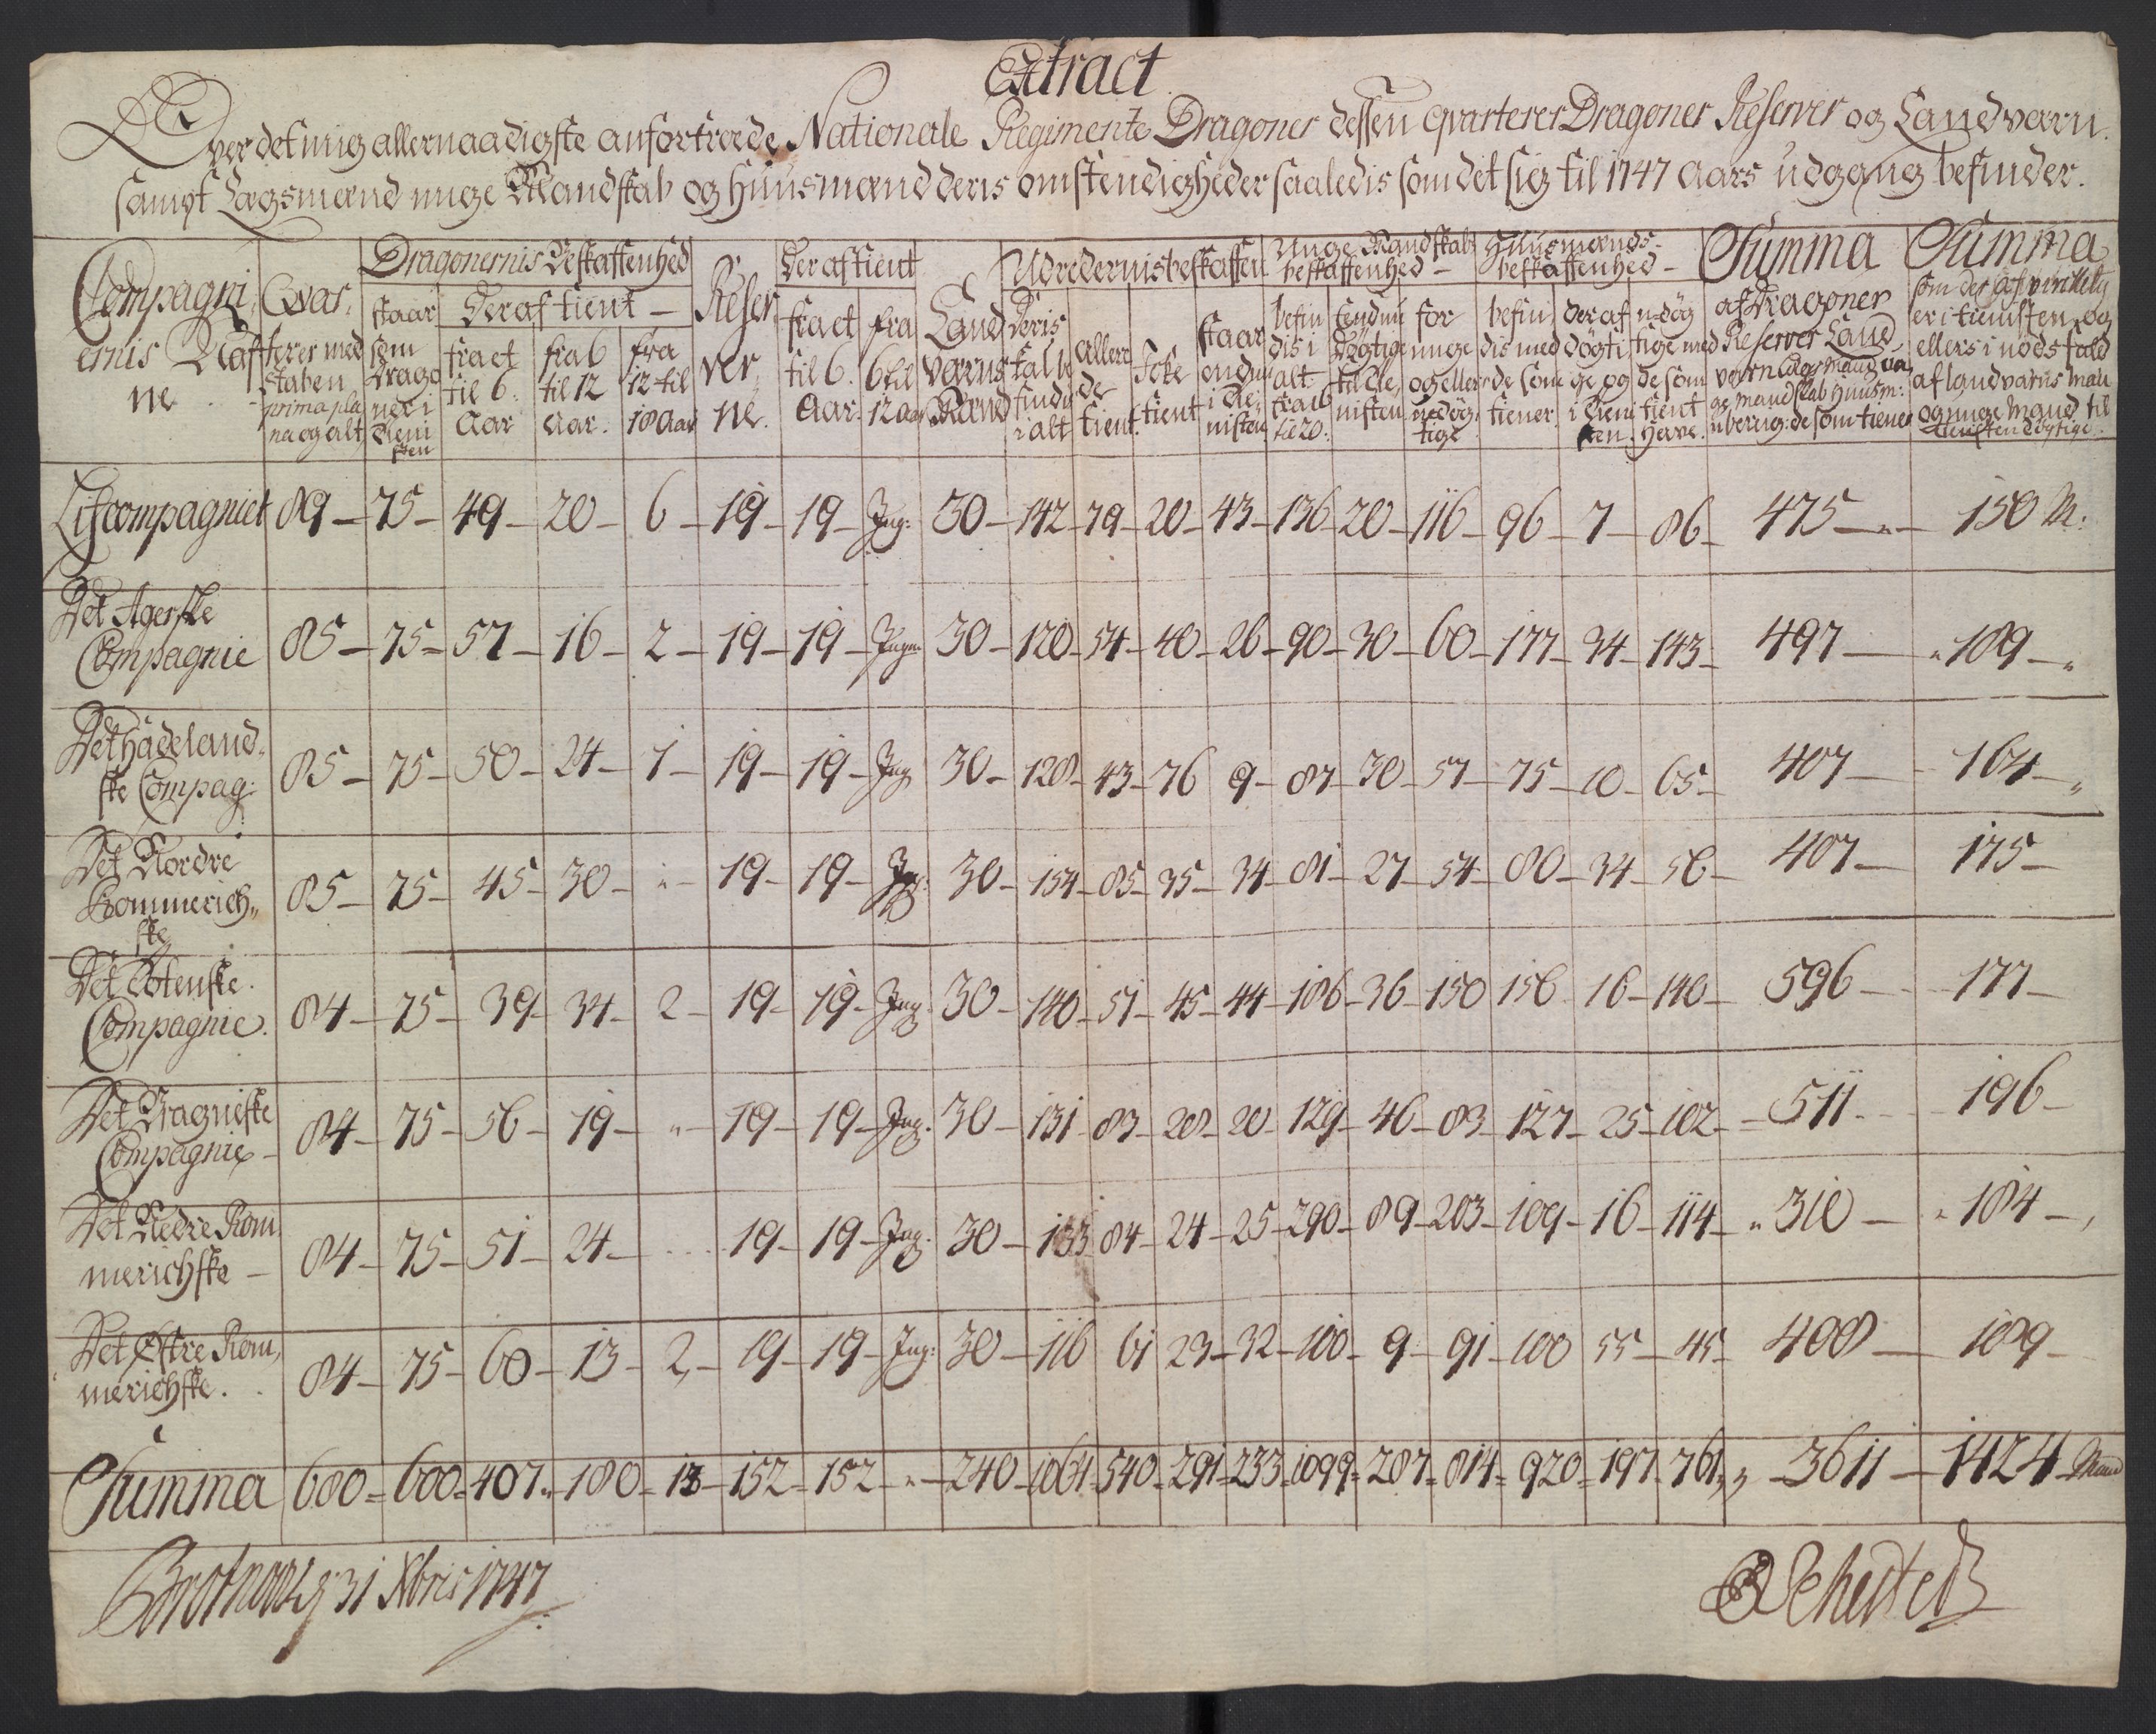 Extract
Over det mig allernaadigste anfortroede Nationale Regimente Dragoner dessen qvarterer Dragoner Reserver og Landværn.
sampt Lægsmænd unge Mandskab og Huusmænd deris omstendigheder saaledis som det sig til 1747 Aars udgang befinder.
Compagniernis Nafne
Qvarterer med staben prima plana og alt
Dragonernis Beskaffenhed
staar som Dragoner i tienisten
Der af tient
fra et til 6 Aar
fra 6 til 12 Aar.
fra 12 til 18 Aar
Reserverne.
Der af tient
fra et til 6. Aar.
fra 6 til 12 Aar
Landværns Mand
Udredernis beskaffen
Deris tal befindes i alt
allerede tient.
Icke tient
staar endnu i tienisten
Unge Mandskabs beskaffenhed
befindis i alt fra 16 til 20:
endnu Døgtige til tienisten
for unge og eller udøgtige
Huusmænds beskaffenhed
befindis med de som tiener
der af døgtige og i tienisten.
udøgtige med de som tient herre.
Summa
af Dragoner Reserver Land værn Lægsmand unge Mandskab Huusm: uberegn: de som tiener
Summa
som der af virkelig er i tienisten og ellers i nøds fald af landværns man og unge Mand til tienisten døgtige
Lifcompagniet 89 75 49 20 6 19 19 Ing: 30 142 79 20 43 136 20 116 96 7 86 475 150 M:
Det Agerske Compagnie 85 75 57 16 2 19 19 Ingen 30 120 54 40 26 90 30 60 177 34 143 497 189
Det Hadelandske Compag: 85 75 50 24 1 19 19 Ing 30 128 43 76 9 87 30 57 75 10 65 407 164
Det Nordre Rommerichske 85 75 45 30 19 19 Ing: 30 154 85 35 34 81 27 54 80 34 56 407 175
Det Totenske Compagnie. 84 75 39 34 2 19 19 Ing. 30 140 51 45 44 186 36 150 156 16 140 596 177
Det Dragneske Compagnie 84 75 56 19 19 19 Ing. 30 131 83 28 20 129 46 83 127 25 102 511 196
Det Nedre Rommerichske 84 75 51 24 19 19 Ing. 30 133 84 24 25 290 89 203 109 16 114 310 184
Det Østre Rommerichske. 84 75 60 13 2 19 19 Ing: 30 116 61 23 32 100 9 91 100 55 45 408 189
Summa 680 600 407 180 13 152 152 240 1064 540 291 233 1099 287 814 920 197 761 3611 1424 Mand
31 Xbris 1747